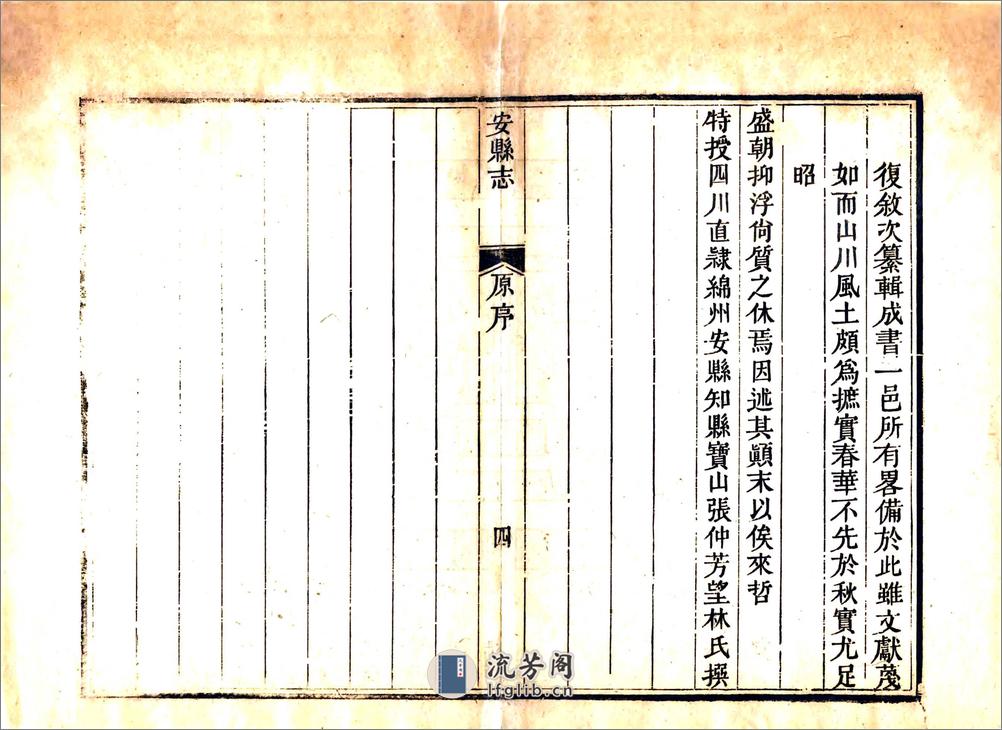 復敘次纂輯成書一邑所有畧備於此雖文獻蔑
如而山川風土頗為摭實春華不先於秋實尤足
昭
盛朝抑浮尙質之休焉因述其顚末以俟來哲
特授四川直隸綿州安縣知縣寶山張仲芳望林氏撰
安縣志
原序
四
流芳阁
lfglib.cn